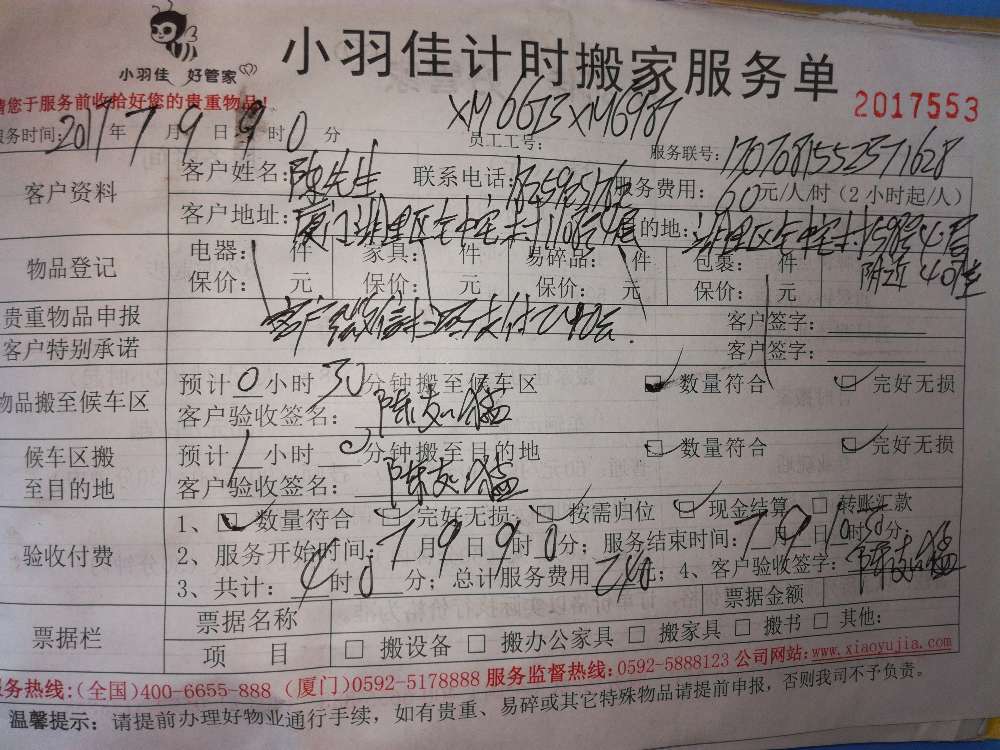 小羽佳 好管家
小羽佳计时搬家服务单
请您于服务前收拾好您的贵重物品！
2017553
服务时间: 2017 年 7 月 9 日 9 时 0 分
员工工号: XM6613 XM6987
服务联号: 1707081552371628
客户资料
客户姓名: 陈先生 联系电话: 服务费用: 60 元/人/时 (2小时起/人)
客户地址: 厦门湖里区 村1108号4层 目的地: 湖里区 村1598号4层
附近40米
物品登记
电器: 件 家具: 件 易碎品: 件 包裹: 件
保价: 元 保价: 元 保价: 元 保价: 元
贵重物品申报
客户签字:
客户 微信 支付240元.
客户特别承诺
客户签字:
物品搬至候车区
预计 0 小时 30 分钟搬至候车区 数量符合 完好无损
客户验收签名: 陈志猛
候车区搬至目的地
预计 1 小时 0 分钟搬至目的地 数量符合 完好无损
客户验收签名: 陈志猛
验收付费
1、 数量符合 完好无损 按需归位 现金结算 转账汇款
2、服务开始时间: 7 月 9 日 9 时 0 分; 服务结束时间: 7 月 9 日 10 时 分;
3、共计: 4 时 0 分; 总计服务费用 240; 4、客户验收签字: 陈志猛
票据栏
票据名称 票据金额
项 目 搬设备 搬办公家具 搬家具 搬书 其他:
服务热线:(全国)400-6655-888 (厦门)0592-5178888 服务监督热线: 0592-5888123 公司网站: www.xiaoyujia.com
温馨提示: 请提前办理好物业通行手续，如有贵重、易碎或其它特殊物品请提前申报，否则我司不予负责。